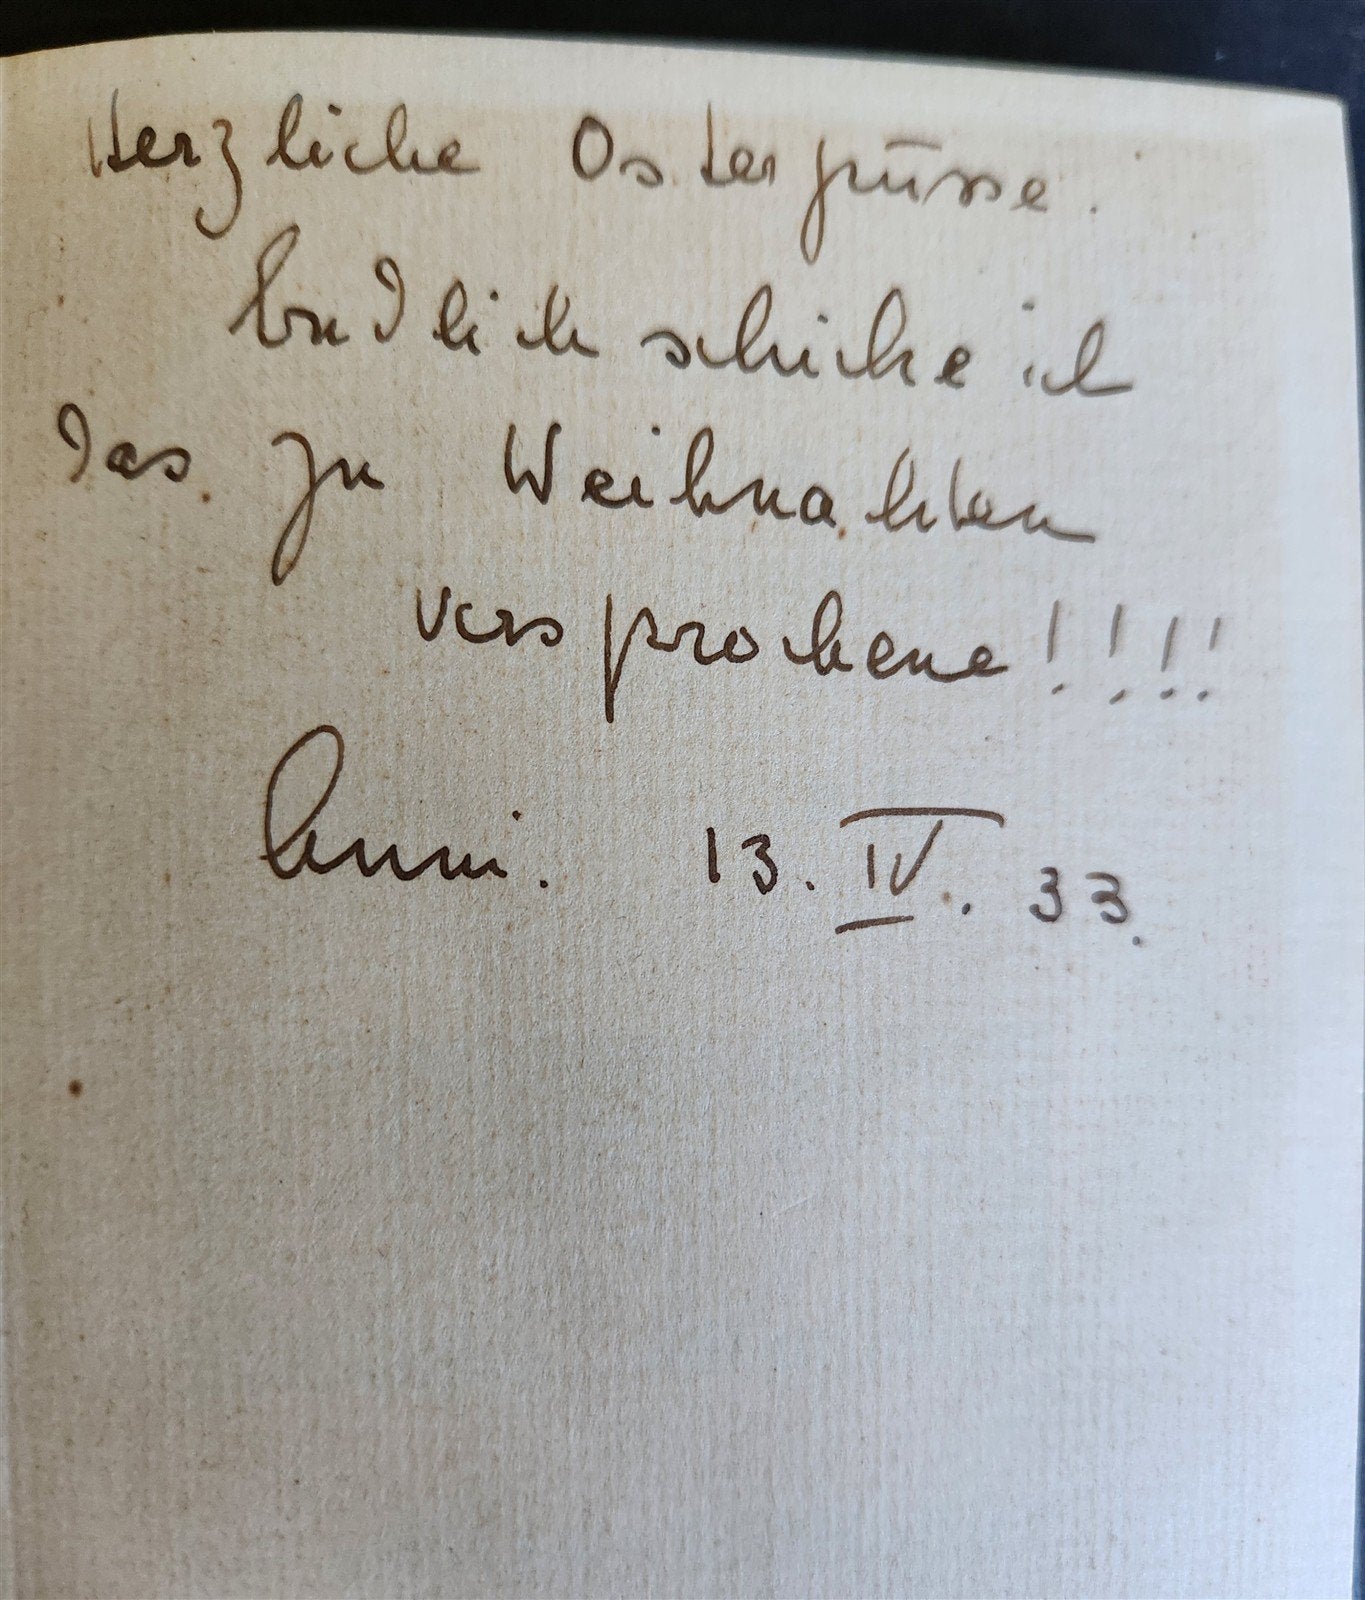 Herzliche Ostergrüsse.
Endlich schicke ich
das zu Weihnachten
versprochene!!!!
Anni. 13. IV. 33.